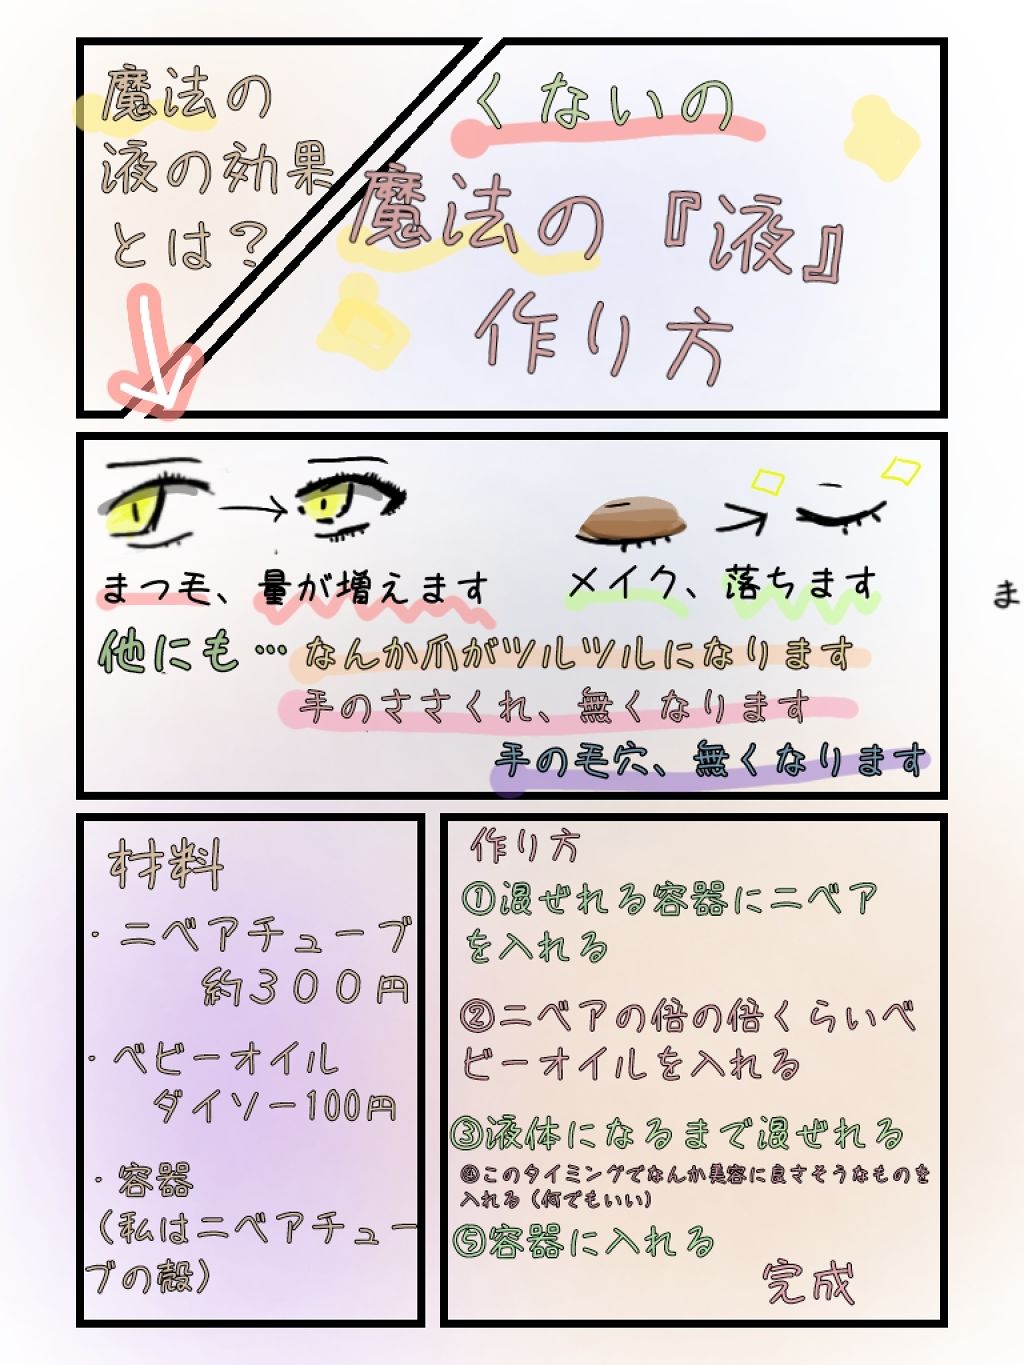 魔法の
液の効果
とは？
くないの
魔法の『液』
作り方
まつ毛、量が増えます
メイク、落ちます
ま
他にも…なんか爪がツルツルになります
手のささくれ、無くなります
手の毛穴、無くなります
材料
・ニベアチューブ
約３００円
・ベビーオイル
ダイソー100円
・容器
（私はニベアチュー
ブの殻）
作り方
①混ぜれる容器にニベア
を入れる
②ニベアの倍の倍くらいベ
ビーオイルを入れる
③液体になるまで混ぜれる
④このタイミングでなんか美容に良さそうなものを
入れる（何でもいい）
⑤容器に入れる
完成